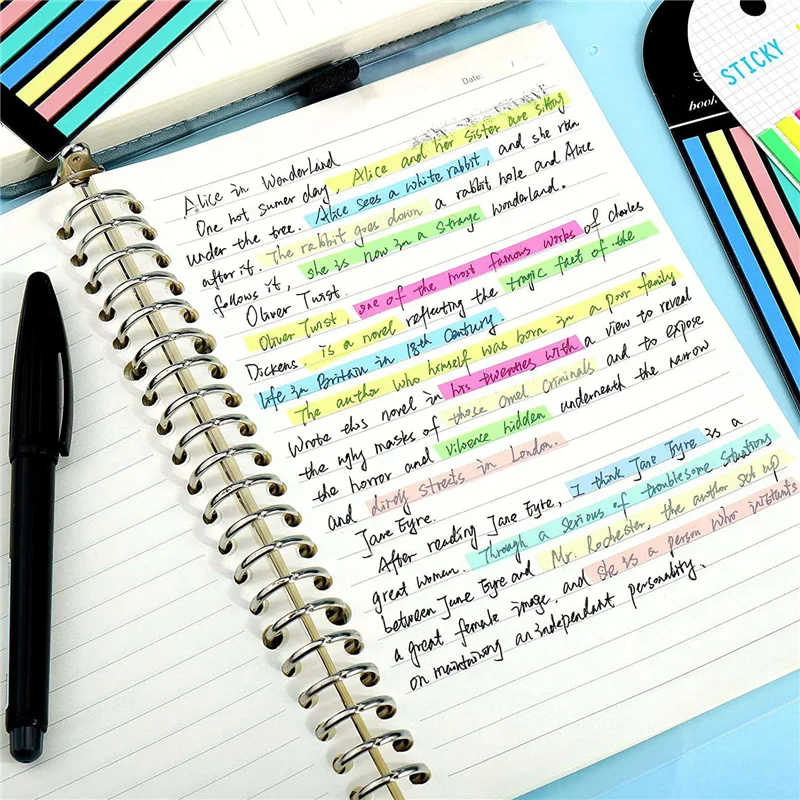 Date: /
Alice in Wonderland
One hot sumer day, Alice and her sister are sitting
under the tree. Alice sees a white rabbit, and she ran
after it. The rabbit goes down a rabbit hole and Alice
follows it, she is now in a strage wonderland.
Oliver Twist.
Oliver Twist, one of the most famous works of charles
Dickens. is a novel reflecting the tragic fact of the
life in Britain in 18th Century
The author who himself was born in a poor family
Wrote this novel in his twenties with a view to reveal
the ugly masks of those criminals and to expose
the horror and vilence hidden underneath the narrow
and dirdy streets in London.
Jane Eyre.
After reading Jane Eyre, I think Jane Eyre is a
great woman. Through a serious of troublesome situations
between Jane Eyre and Mr. Rochester, the author set up
a great female image. and she is a person who insistants
on maintaining an independent personality.
STICKY
book